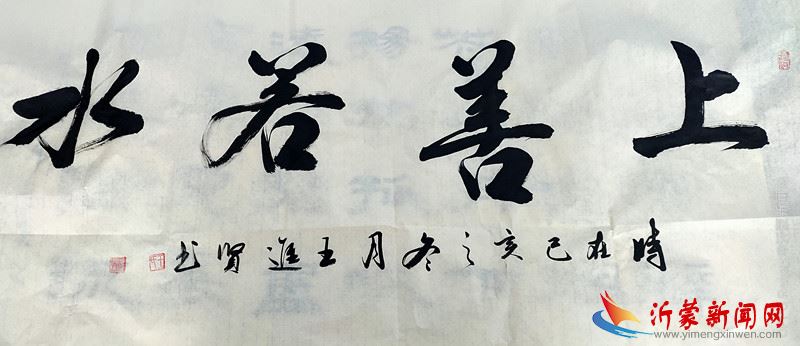 上善若水
時在己亥之冬月王進賢书
沂蒙新闻网
www.yimengxinwen.com